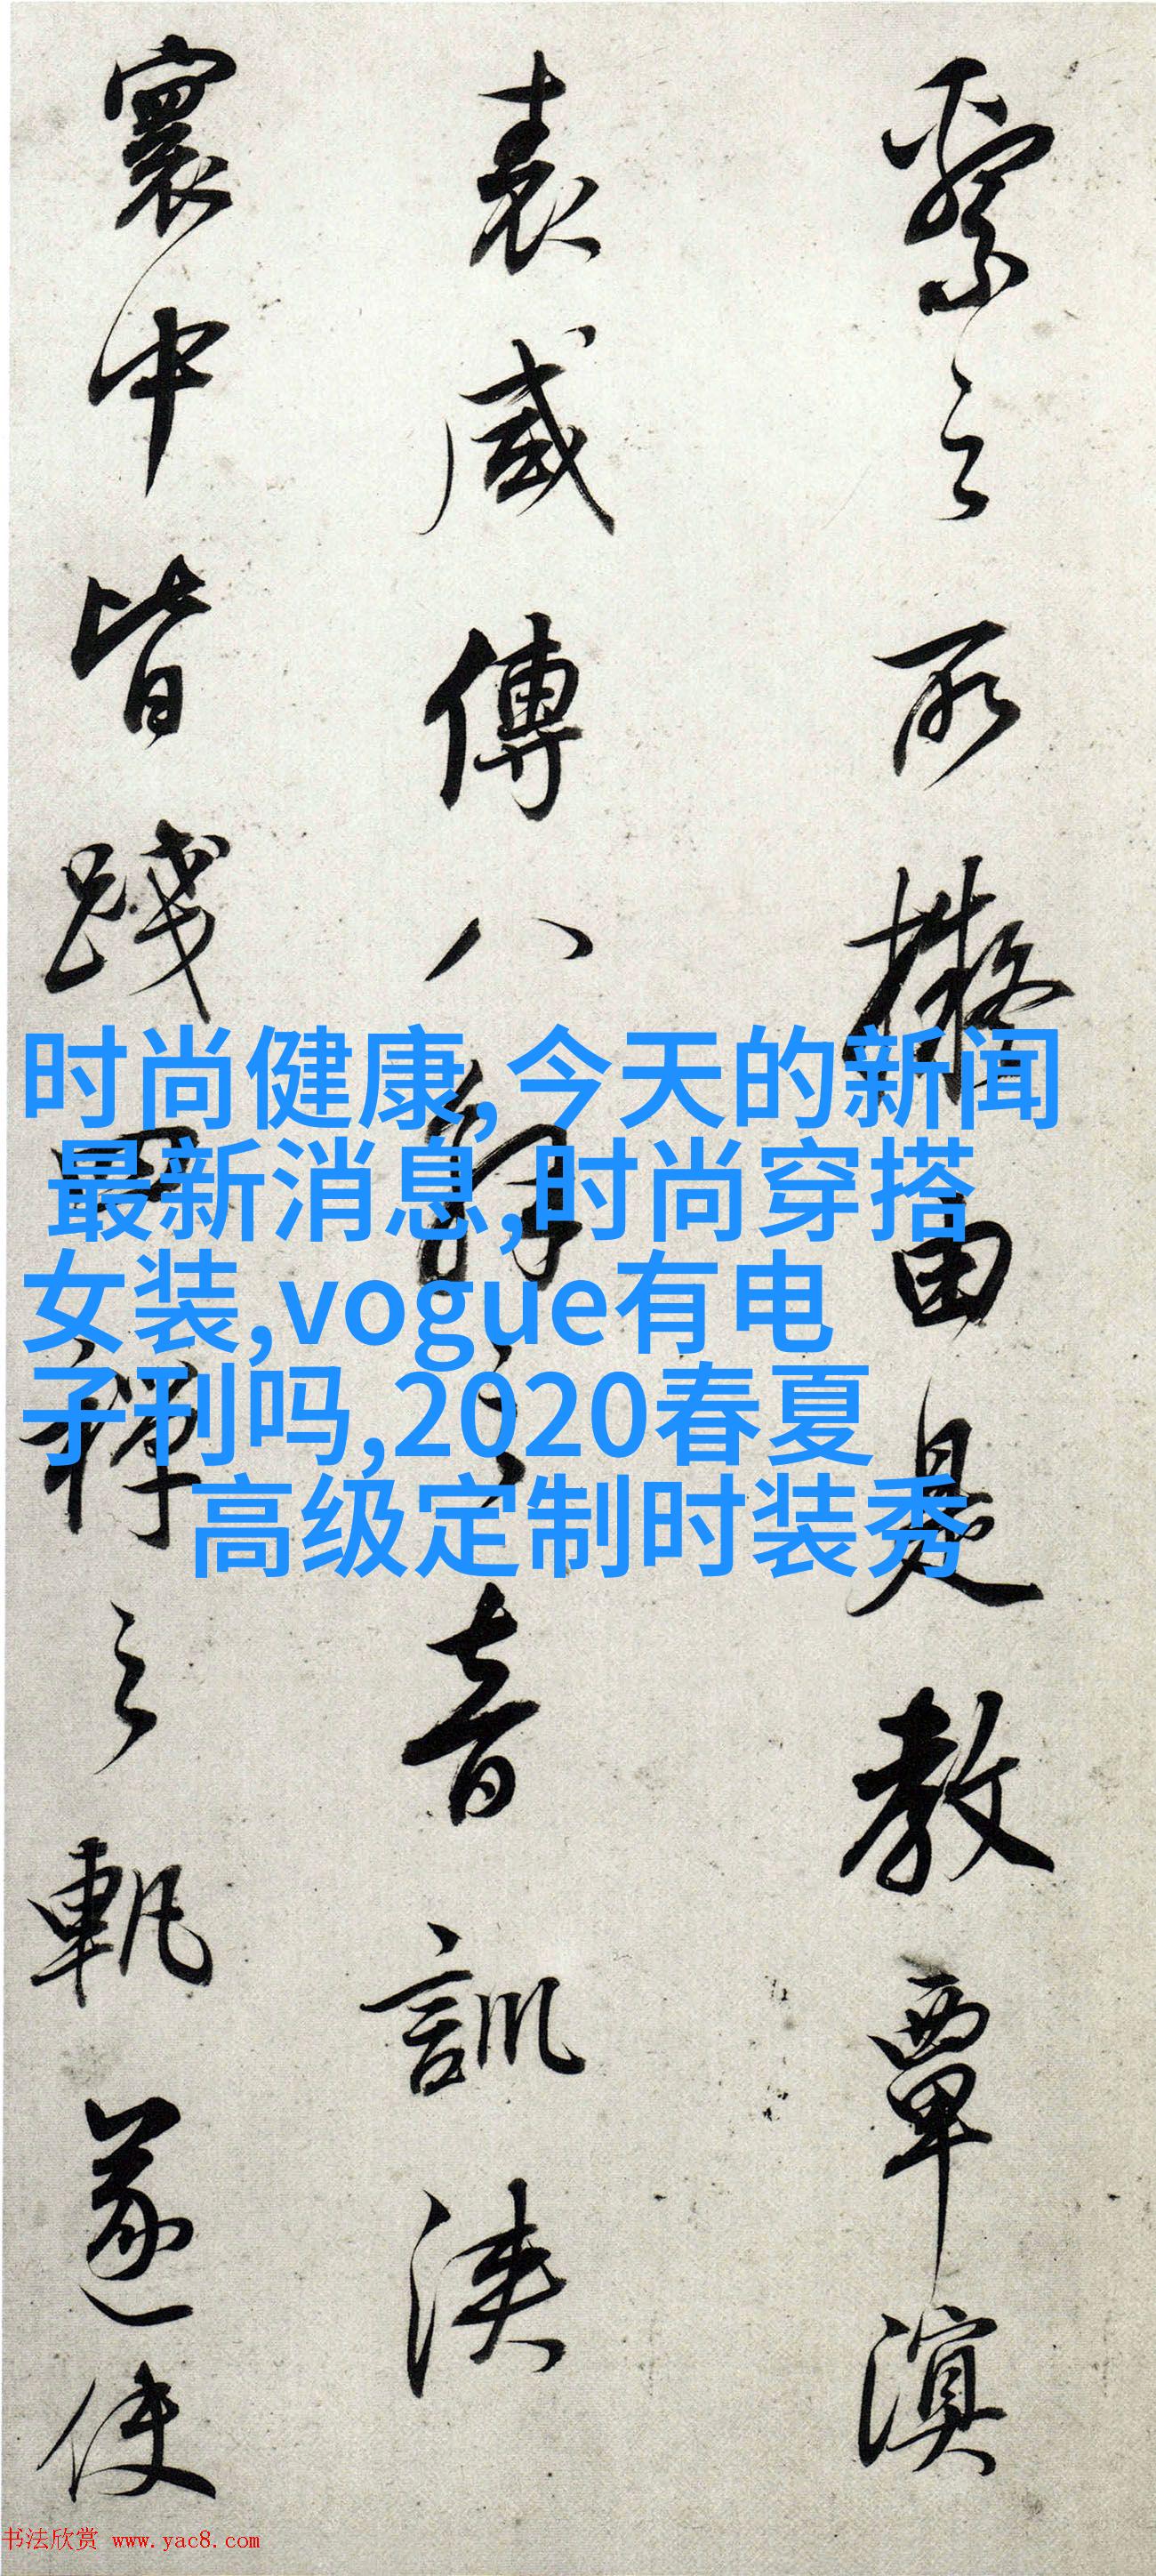 繫之所擬由是教覃溟
表威傳八解之音訓浹
寰中皆踐四禪之軌遂使
时尚健康,今天的新闻
最新消息,时尚穿搭
女装,vogue有电
子刊吗,2020春夏
高级定制时装秀
书法欣赏 www.yac8.com